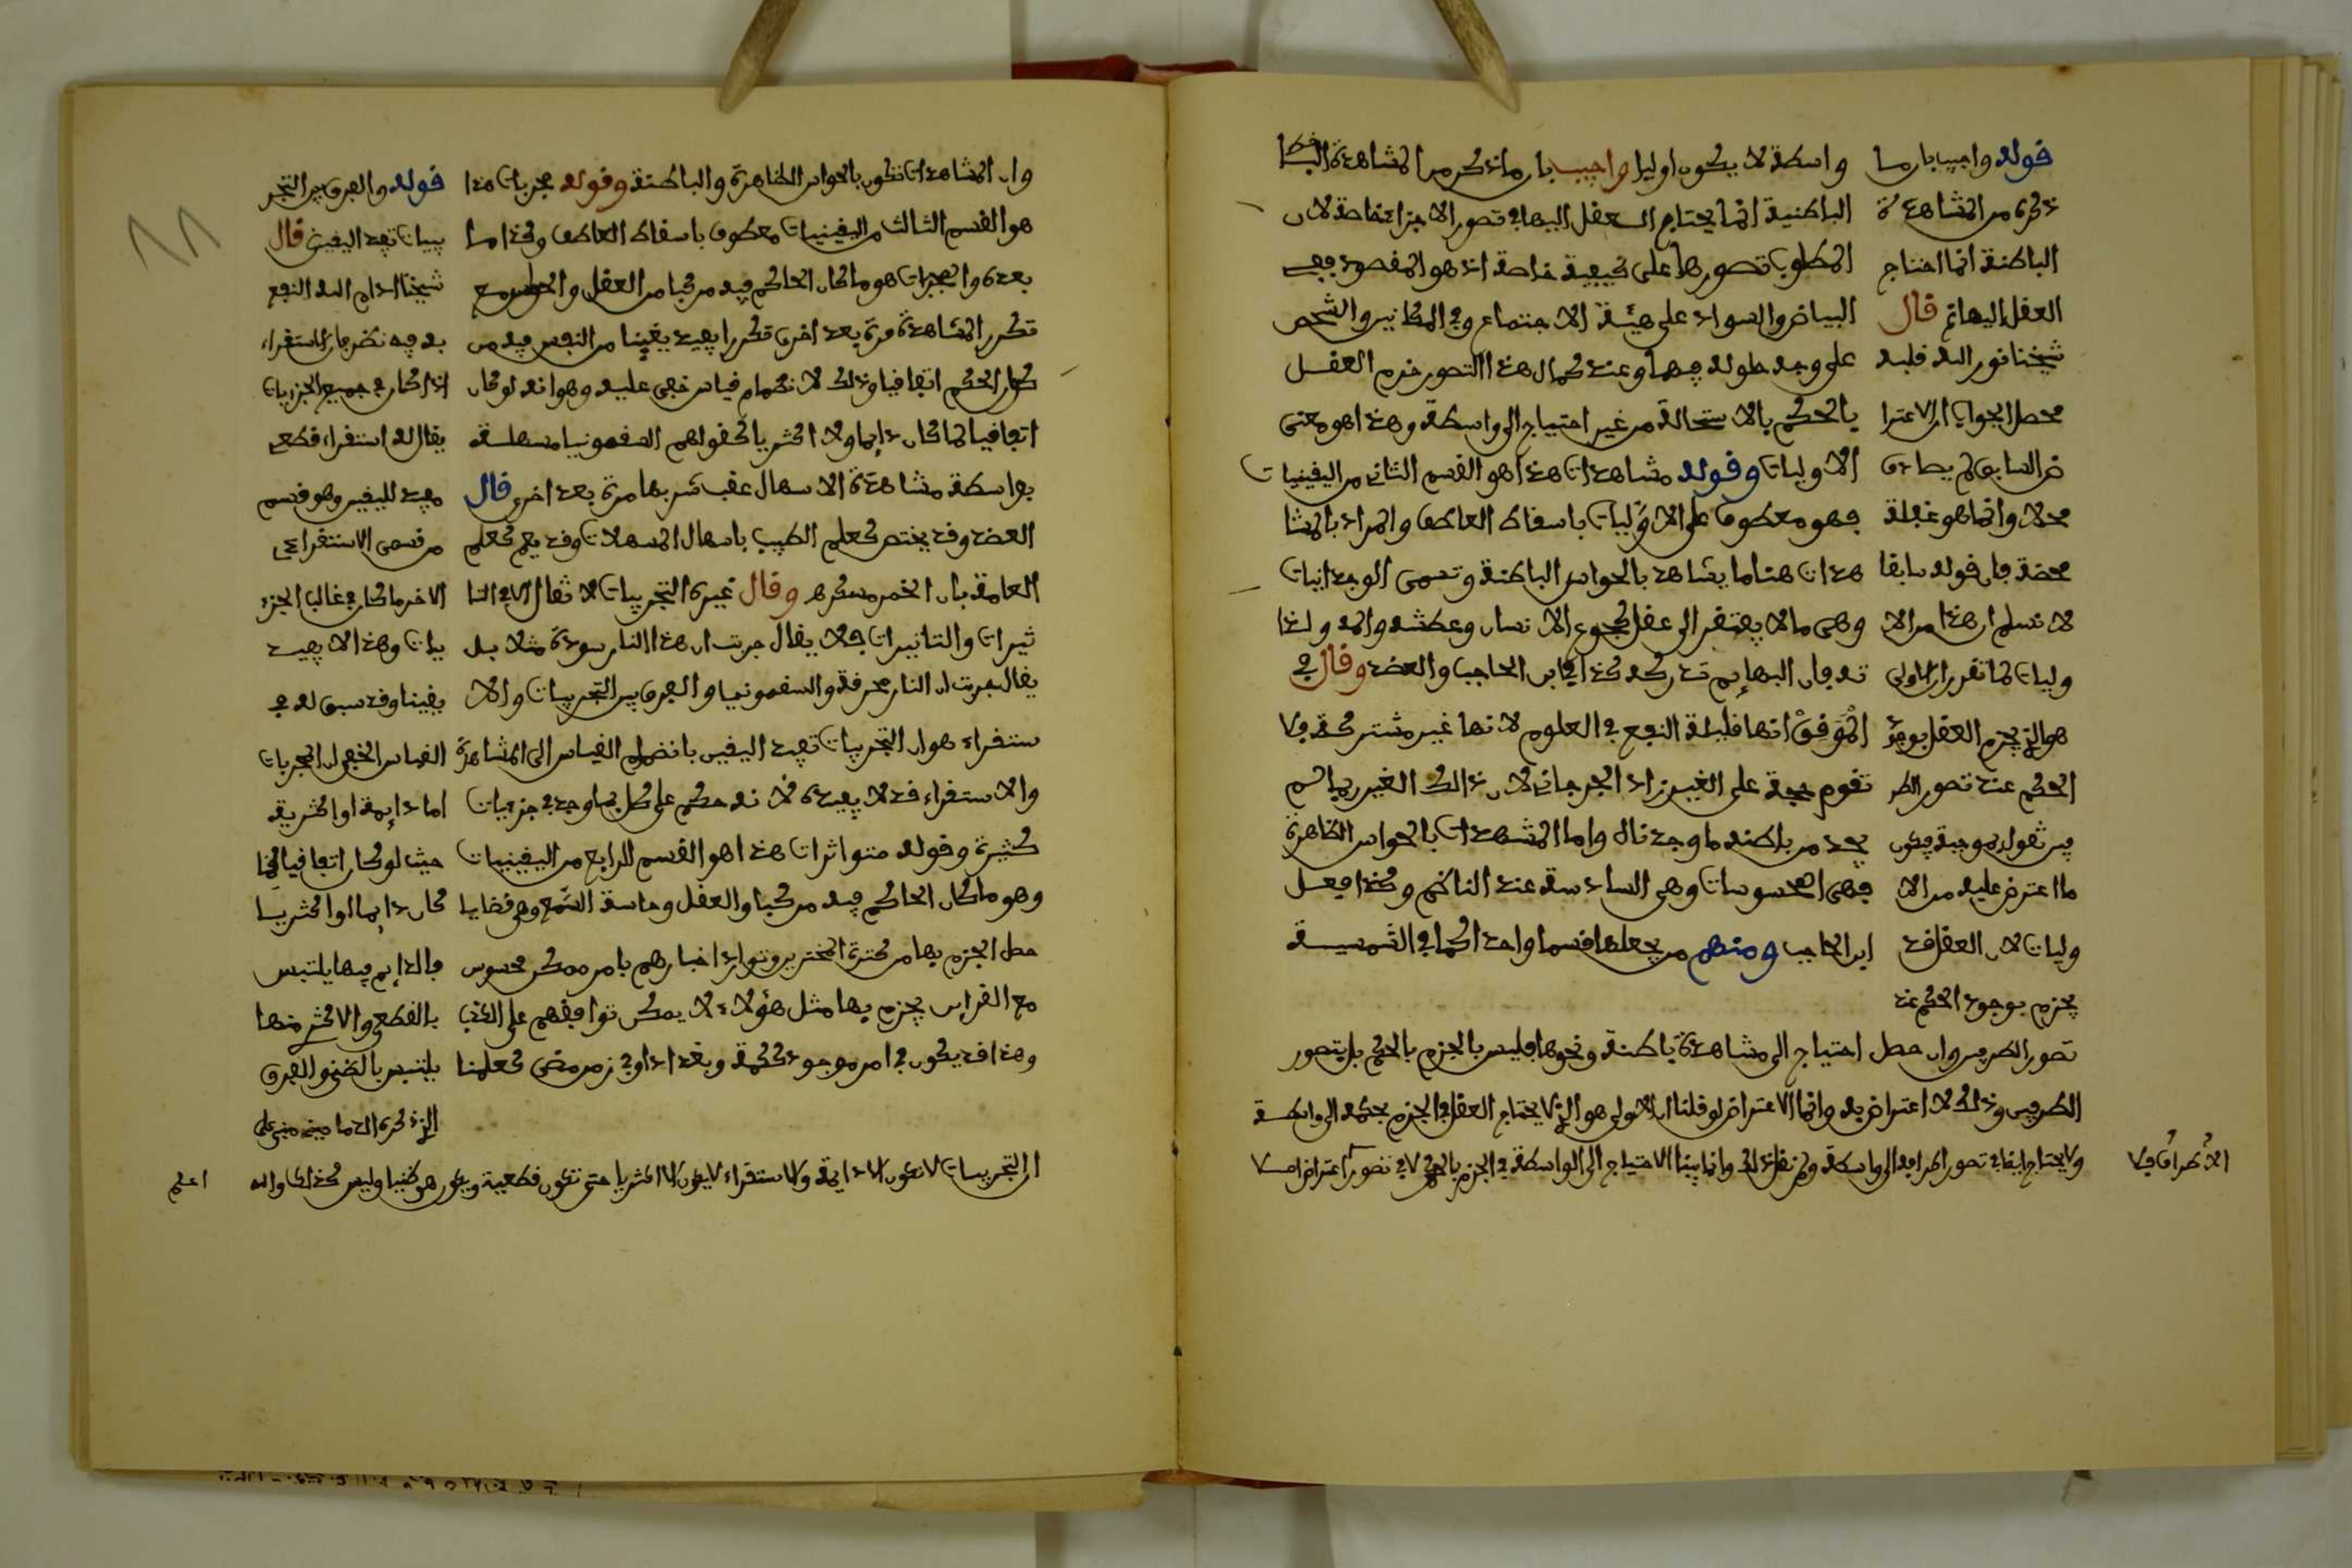 واسطة لا يكون اوليا واجيب بان ما ذكر من المشاهدة
الباطنية انما يحتاج العقل اليها في تصور الاجزاء خاصة لان
المطلوب تصورها على كيفية خاصة اذ هو المقصود ففي
البياض والسواد على هيئة الاجتماع وفي المكانين والشخص
على وجه حلوله فيهما وعند كمال هذا التصور جزم العقل
بالحكم بالاستحالة من غير احتياج الى واسطة وهذا هو معنى
الاوليات وقوله مشاهدات هذا هو القسم الثاني من اليقينيات
فهو معطوف على الاوليات باسقاط العاطف والمراد بالمشا
هدات هنا ما يشاهد بالحواس الباطنة وتسمى الوجدانيات
وهي ما لا يفتقر الى عقل كجوع الانسان وعطشه والمه ولذا
ته فان البهايم تدركه كذا في ابن الحاجب والعضد وقال في
المَوَقِف انها قليلة النفع في العلوم لانها غير مشتركة فلا
تقوم حجة على الغير زاد الجرجاني لان ذالك الغير ربما لم
يجد من باطنه ما وجدناه واما المشهدات بالحواس الظاهرة
فهي المحسوسات وهي السادسة عند الناظم وكذا فعل
ابن الحاجب ومنهم من يجعلها قسما واحدا كما في الشمسية
قوله واجيب بان ما
ذكره من المشاهدة
الباطنة انما احتاج
العقل اليها ثم قال
شيخنا نور الله قلبه
محصل الجواب ان الاعترا
ض السابق لم يصادف
محلا وانما هو غفلة
محضة فان قوله سابقا
لا نسلم ان هذا من الا
وليات كما تقرر ان الاولى
هو الذي يجزم العقل بوجود
الحكم عند تصور الطر
ما اعترض عليه من الا
وليات لان العقل قد
يجزم بوجود الحكم عند
تصور الطرفين وان حصل احتياج الى مشاهدة باطنة ونحوها فليس بالجزم بالحكم بل بتصور
الطرفين وذلك لا اعتراض به وانما الاعتراض لو قلنا ان الاولى هو الذي لا يحتاج العقل في الجزم بحكمه الى واسطة
ولا يحتاج ايضا في تصور اطرافه الى واسطة ولم نقل ذلك وانما بينا الاحتياج الى الواسطة في الجزم بالحكم لا في تصور
وان المشاهدات تكون بالحواس الظاهرة والباطنة وقوله مجربات هذا
هو القسم الثالث من اليقينيات معطوف باسقاط العاطف وكذا ما
بعده والمجربات هو ما كان الحاكم فيه مركبا من العقل والحواس مع
تكرر المشاهدة مرة بعد اخرى تكررا يفيد يقينا من النفس فيه من
كون الحكم اتفاقيا وذلك لانضمام قياس خفي عليه وهو انه لو كان
اتفاقيا لما كان دايما ولا اكثريا كقولهم السقمونيا مسهلة
بواسطة مشاهدة الاسهال عقب شربها مرة بعد اخرى قال
العضد وقد يختص كعلم الطبيب باسهال المسهلات وقد يعم كعلم
العامة بان الخمر مسكرة وقال غيره التجربيات لا تقال الا في التا
ثيرات والتأثيرات فلا يقال جربت ان هذا النار سودة مثلا بل
يقال جربت ان النار محرقة والسقمونيا والفرق بين التجربيات والا
ستقراء هو ان التجربيات تفيد اليقين بانضمام القياس الى المشاهدة
والاستقراء قد لا يفيده لانه حكم على كل بما وجد في جزئيات
كثيرة وقوله متواترات هذا هو القسم الرابع من اليقينيات
وهو ما كان الحاكم فيه مركبا والعقل وحاسة السمع وهي قضايا
حصل الجزم بها من كثرة المخبرين وتواتر اخبارهم بامر ممكن محسوس
مع القراين يجزم بها مثل هؤلاء لا يمكن توافقهم على الكذب
وهذا قد يكون في امر موجود كمكة وبغداد او في زمن مضى كعلمنا
قوله والفرق بين التجر
بيات تفيد اليقين قال
شيخنا ادام الله النفع
به فيه نظر فان الاستقراء
اذا كان في جميع الجزئيات
يقال له استقراء قطعي
مفيد لليقين وهو قسم
من قسمي الاستقراء
الاخر ما كان في غالب الجزء
يات وهذا لا يفيد
يقينا وقد سبق له في
القياس الخفي ان المجربات
اما دايمة او اكثرية
حيث لو كان اتفاقيا لما
كان دايما او اكثريا
فالدايم فيها يلتبس
بالقطعي والاكثر منها
يلتبس بالظني والفرق
الذي ذكره انما مبني على
ان التجربيات لا تكون الا دايمة والاستقراء لا يكون الا اكثريا حتى تكون قطعية ويكون هو ظنيا وليس كذلك والله اعلم